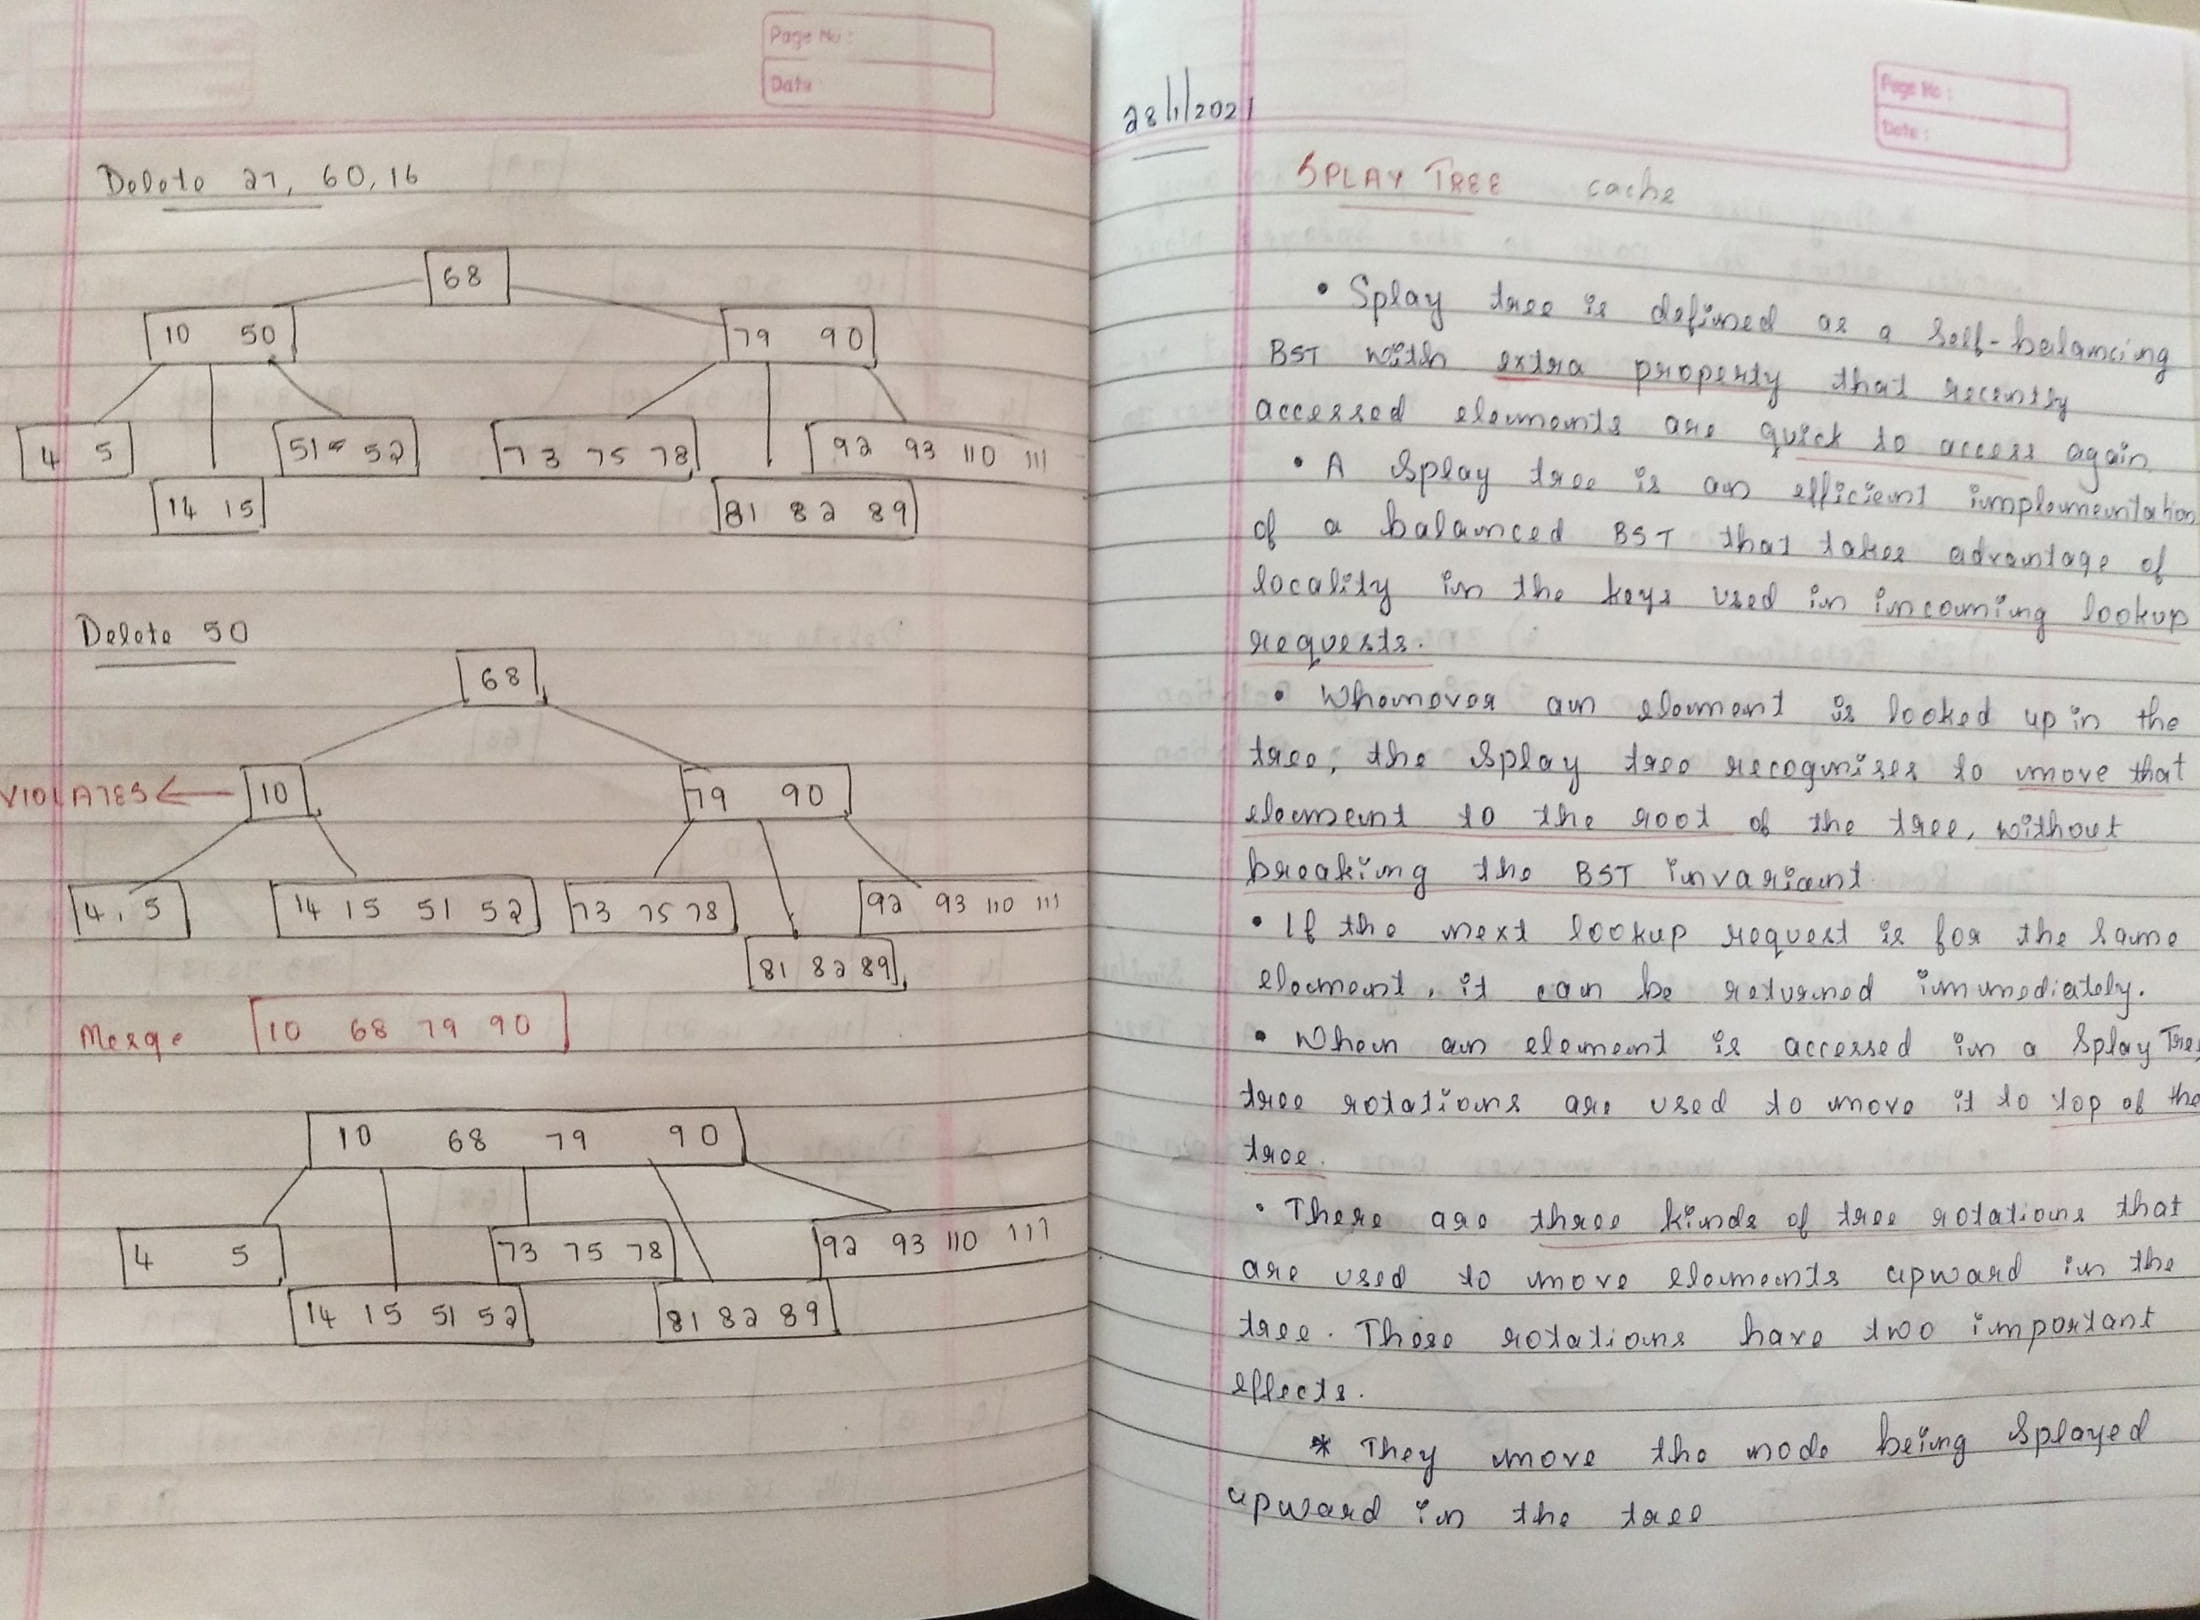 Page No :
Date
Delete 27, 60, 16
68
10 50
79 90
4 5
51 52
73 75 78
92 93 110 111
14 15
81 82 89
Delete 50
68
VIOLATES
10
79 90
4, 5
14 15 51 52
73 75 78
92 93 110 111
81 82 89
Merge 10 68 79 90
10 68 79 90
4 5
73 75 78
92 93 110 111
14 15 51 52
81 82 89
28/1/2021
Page No :
Date :
SPLAY TREE cache
• Splay tree is defined as a self-balancing
BST with extra property that recently
accessed elements are quick to access again
• A splay tree is an efficient implementation
of a balanced BST that takes advantage of
locality in the keys used in incoming lookup
requests.
• Whenever an element is looked up in the
tree, the splay tree recognises to move that
element to the root of the tree, without
breaking the BST invariant
• If the next lookup request is for the same
element, it can be returned immediately.
• When an element is accessed in a Splay Tree,
tree rotations are used to move it to top of the
tree.
• There are three kinds of tree rotations that
are used to move elements upward in the
tree. These rotations have two important
effects.
* They move the node being splayed
upward in the tree